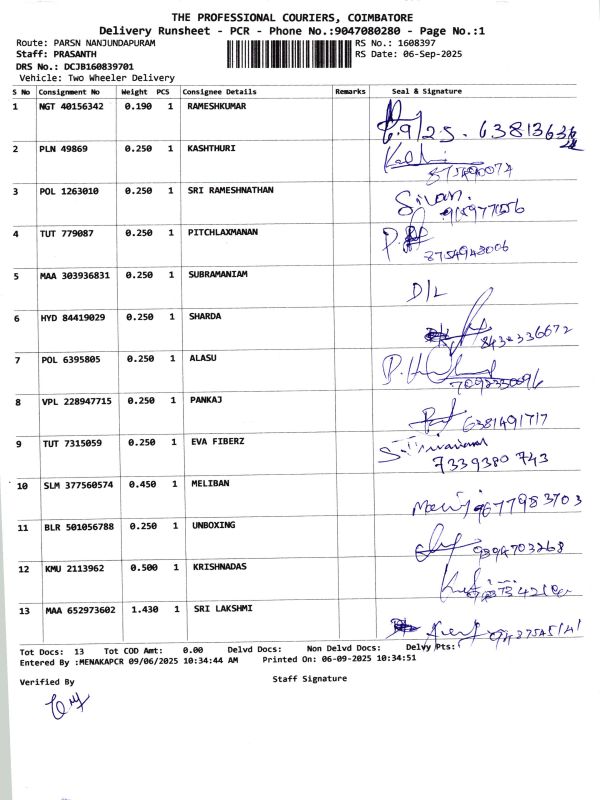 THE PROFESSIONAL COURIERS, COIMBATORE
Delivery Runsheet - PCR - Phone No.:9047080280 - Page No.:1
Route: PARSN NANJUNDAPURAM RS No.: 1608397
Staff: PRASANTH RS Date: 06-Sep-2025
DRS No.: DCJB160839701
Vehicle: Two Wheeler Delivery
S No Consignment No Weight PCS Consignee Details Remarks Seal & Signature
1 NGT 40156342 0.190 1 RAMESHKUMAR
2 PLN 49869 0.250 1 KASHTHURI
3 POL 1263010 0.250 1 SRI RAMESHNATHAN
4 TUT 779087 0.250 1 PITCHLAXMANAN 8754948006
5 MAA 303936831 0.250 1 SUBRAMANIAM D/L
6 HYD 84419029 0.250 1 SHARDA
7 POL 6395805 0.250 1 ALASU
8 VPL 228947715 0.250 1 PANKAJ 6381491717
9 TUT 7315059 0.250 1 EVA FIBERZ
7339380 743
10 SLM 377560574 0.450 1 MELIBAN 9677983703
11 BLR 501056788 0.250 1 UNBOXING 9894703268
12 KMU 2113962 0.500 1 KRISHNADAS
13 MAA 652973602 1.430 1 SRI LAKSHMI
Tot Docs: 13 Tot COD Amt: 0.00 Delvd Docs: Non Delvd Docs: Delvy Pts:
Entered By :MENAKAPCR 09/06/2025 10:34:44 AM Printed On: 06-09-2025 10:34:51
Verified By Staff Signature